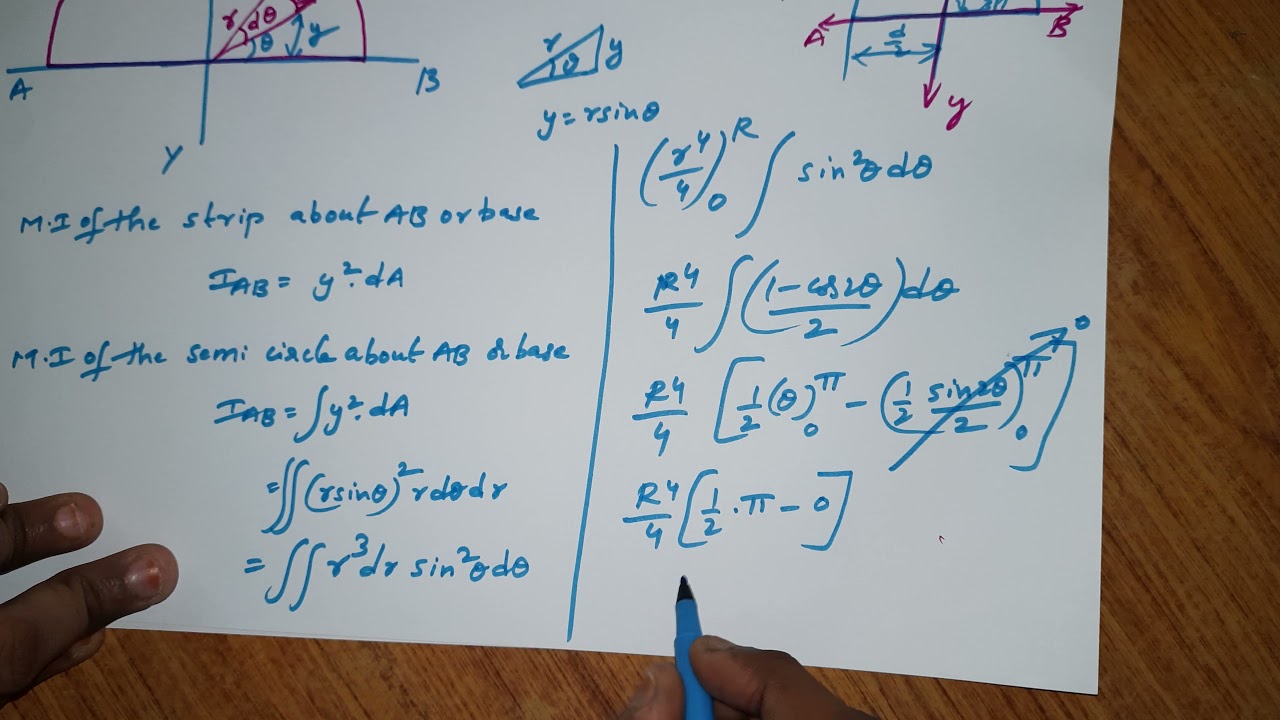 r dθ
θ y
A B
Y
r y
θ
y = r sinθ
A d/2 B
y
M.I of the strip about AB or base
I_AB = y².dA
M.I of the semi circle about AB or base
I_AB = ∫y².dA
=∬(r sinθ)² r dθ dr
= ∬ r³ dr sin²θ dθ
(r⁴/4)₀^R ∫ sin²θ dθ
R⁴/4 ∫((1-cos2θ)/2) dθ
R⁴/4 [1/2 (θ)₀^π - (1/2 sin2θ/2)₀^π] 0
R⁴/4 [1/2 . π - 0]